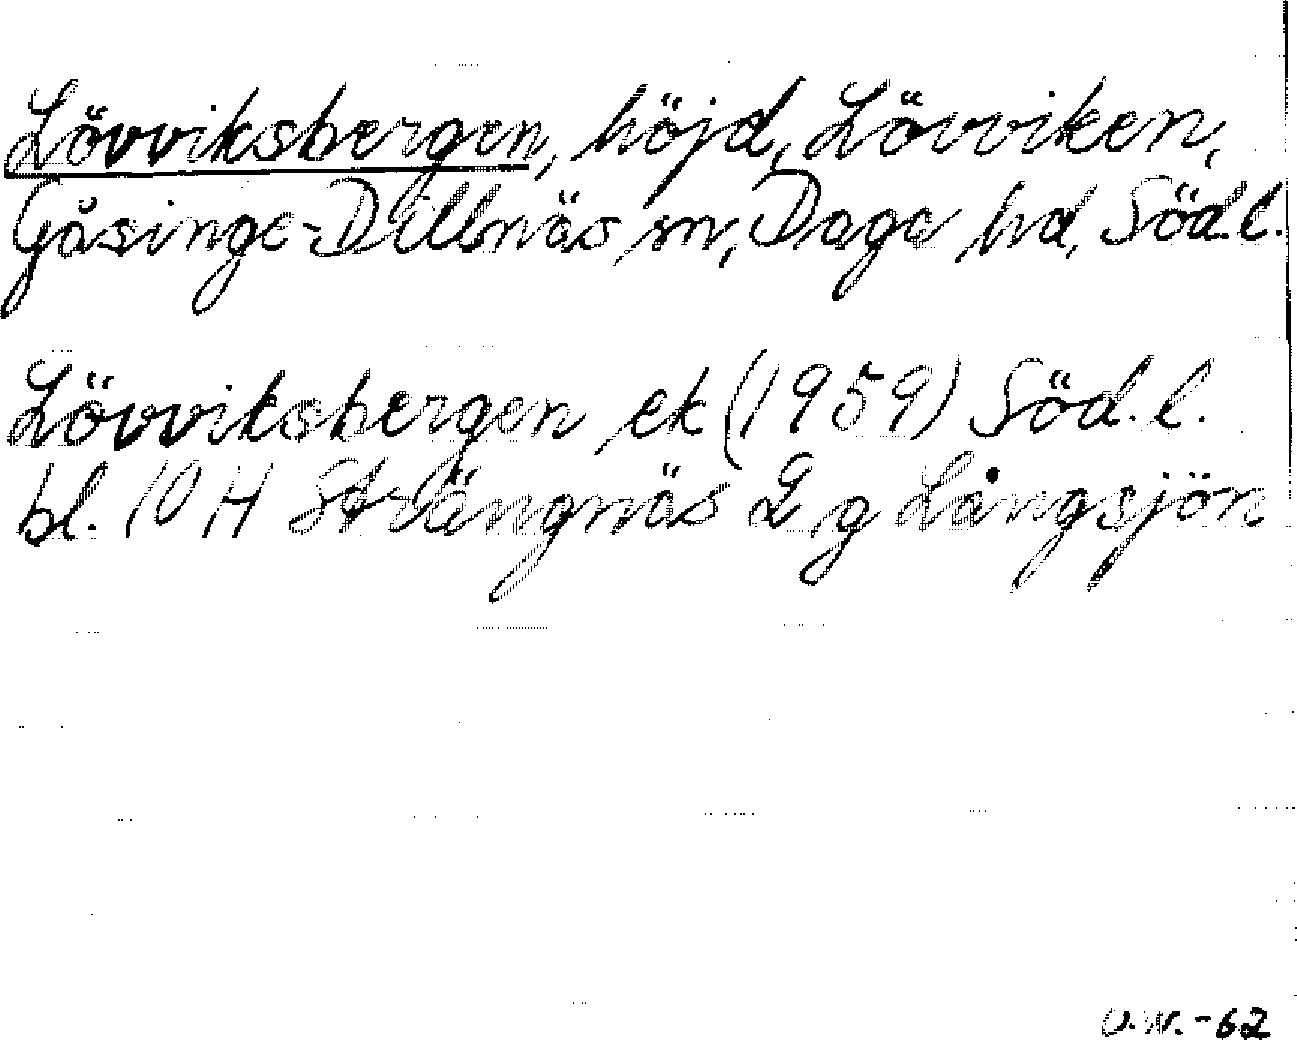 Lövviksbergen, höjd, Lövviken,
Gåsinge-Dillnäs sn, Daga hd, Söd.l.
Lövviksbergen ek (1959) Söd.l.
bl. 10 H Strängnäs 2 g Långsjön
U.W.-62